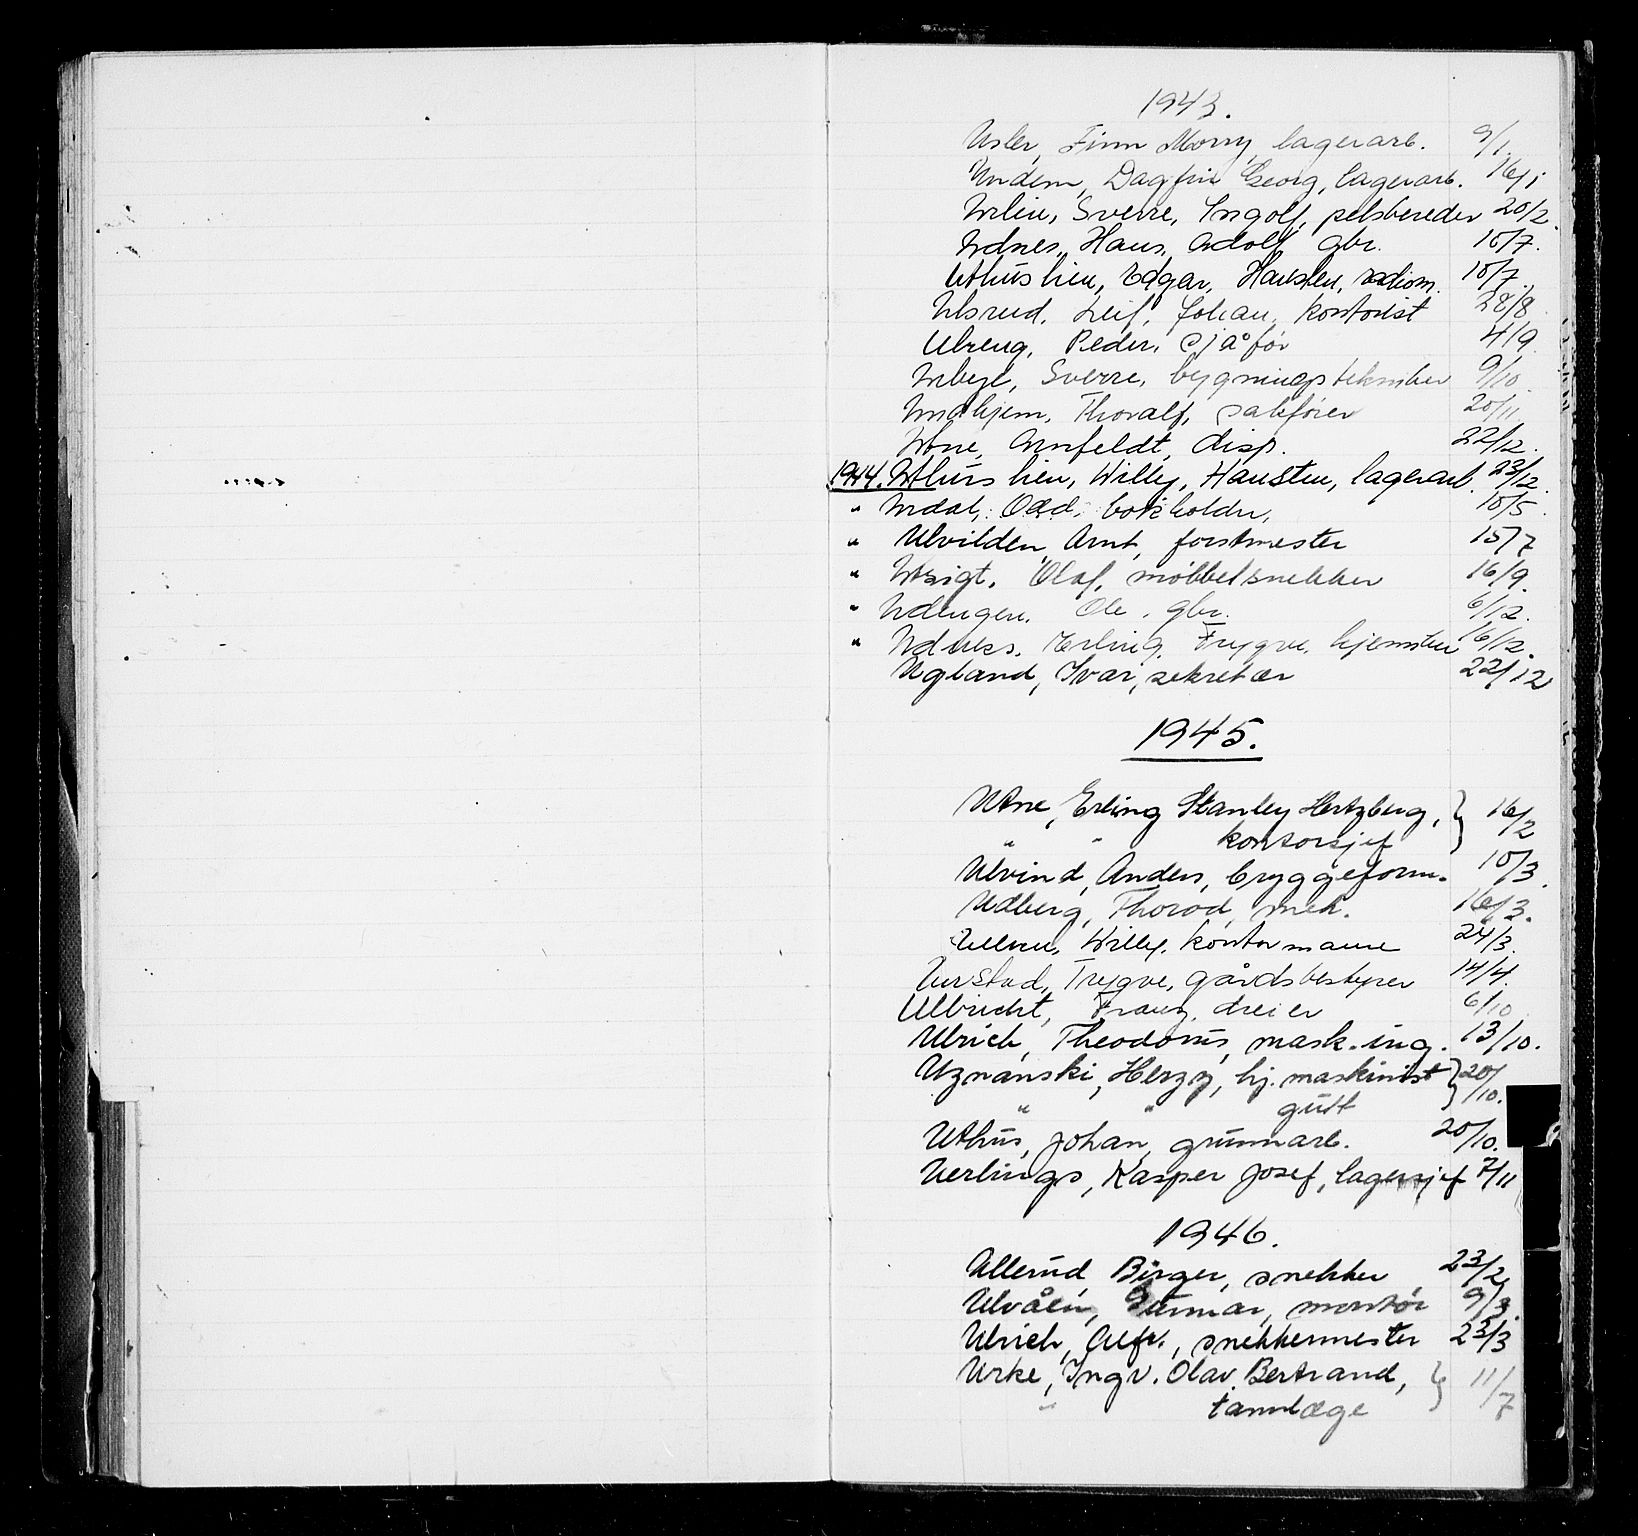 1943.
Usler, Finn Morry, lagerarb. 9/1.
Undem, Dagfin Georg, lagerarb. 16/1
Urlin, Sverre, Ingolf, pelsbereder 20/2.
Udnes, Hans, Adolf, gbr. 10/7.
Uthuslien, Edgar, Hansten, radiom. 10/7.
Ulsrud, Leif, Johan, kontorist 28/8
Ulreng, Peder, sjåfør 4/9
Urbye, Sverre, bygningstekniker 9/10.
Undhjem, Thoralf, sakfører 20/11
Utne, Arnfeldt, disp. 22/12.
1944. Uthuslien, Willy, Hansten, lagerarb. 23/12.
" Urdal, Odd, bokholder, 10/5.
" Ulvilden, Arnt, forstmester 15/7
" Utsigt, Olaf, møbbelsnekker 16/9.
" Udengen, Ole, gbr. 6/12.
" Udness, Erling, Trygve, 16/12.
Ugland, Ivar, sekretær 22/12
1945.
Utne, Erling Stanley Hertzberg, } 16/2
" " kontorsjef
Ulvind, Anders, bryggeform. 10/3.
Udberg, Thorod, mek. 16/3.
Ullven, Willy, kontormann 24/3.
Urstad, Trygve, gårdsbestyrer 14/4.
Ulbricht, Franz, dreier 6/10
Ulrich, Theodorus, mask.ing. 13/10.
Uznanski, Herzy, hj. maskinist } 20/10.
" " gutt
Uthus, Johan, grunnarb. 20/10.
Uerlings, Kasper Josef, lagersjef 7/11
1946.
Ullerud, Birger, snekker 23/2
Ulvåen, Gunnar, montør 9/3.
Ulrich, Alfr., snekkermester 23/3
Urke, Ingv. Olav Bertrand, } 11/7
" tannlæge